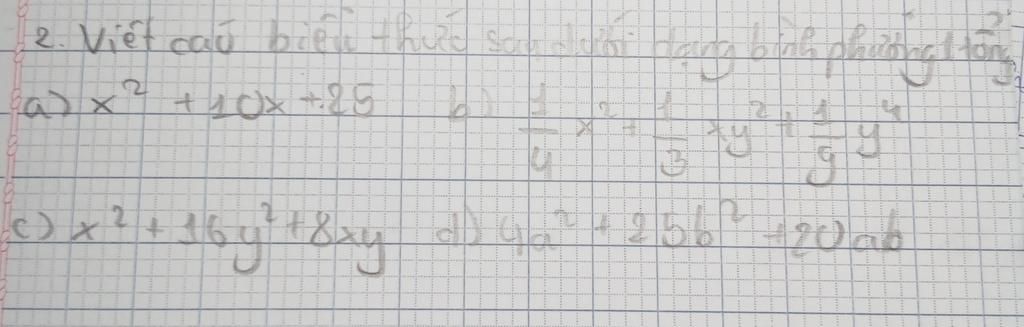 2. Viết các biểu thức sau dưới dạng bình phương 1 tổng
a) x² + 10x + 25 b) 1/4 x² + 1/3 xy² + 1/9 y⁴
c) x² + 16y² + 8xy d) 4a² + 25b² + 20ab